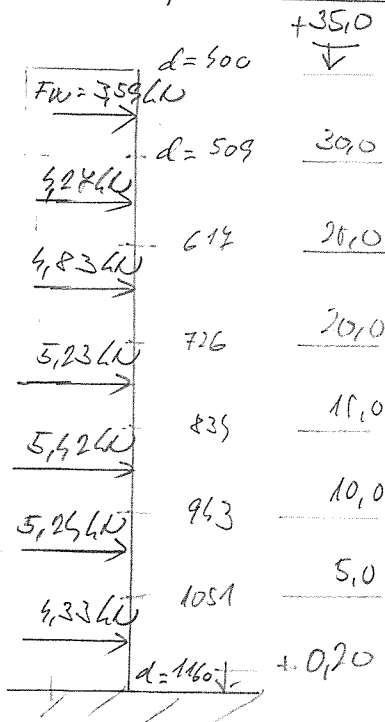 +35,0
d=400
Fw=3,54kN
d=509
30,0
4,27kN
617
25,0
4,83kN
726
20,0
5,23kN
834
15,0
5,42kN
943
10,0
5,24kN
1051
5,0
4,33kN
d=1160
+0,20